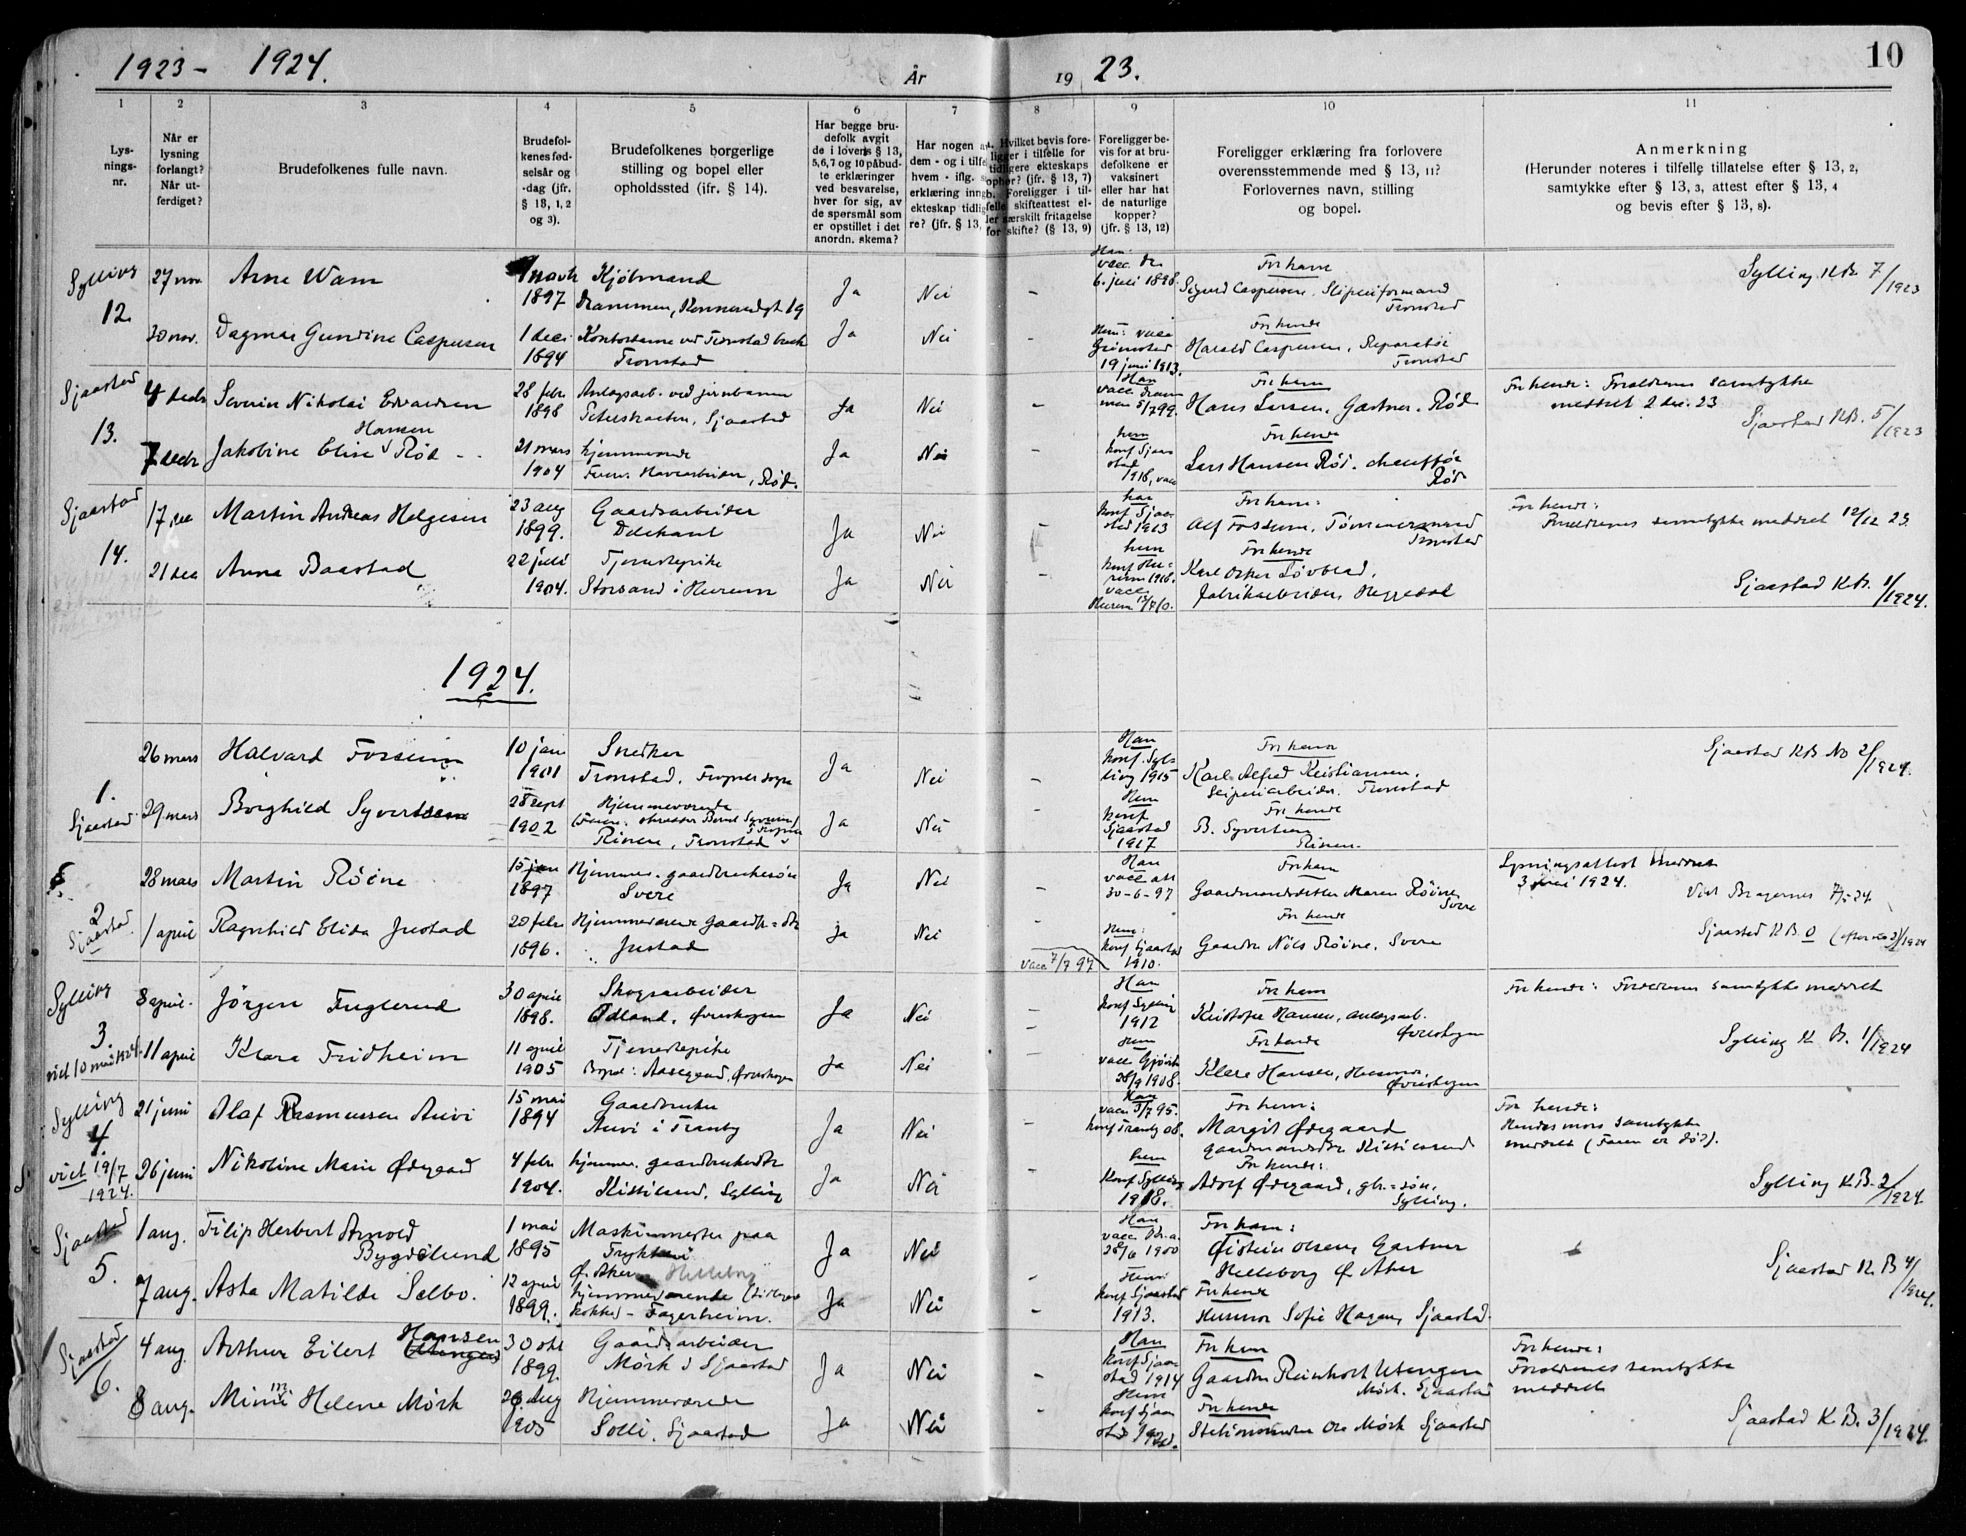 1923 - 1924.
År
19 23.
10
1 2 3 4 5 6 7 8 9 10 11
Lys-
nings-
nr.
Når er
lysning
forlangt?
Når ut-
ferdiget?
Brudefolkenes fulle navn.
Brudefol-
kenes fød-
selsår og
-dag (jfr.
§ 13, 1, 2
og 3).
Brudefolkenes borgerlige
stilling og bopel eller
opholdssted (ifr. § 14).
Har begge bru-
defolk avgit
de i lovens § 13,
5,6,7 og 10 påbud-
te erklæringer
ved besvarelse,
hver for sig, av
de spørsmål som
er opstillet i det
anordn. skema?
Har nogen av
dem - og i tilfe
hvem - iflg.
erklæring inng
ekteskap tidlig
re? (jfr. § 13,
Hvilket bevis fore-
ligger i tilfelle for
tidligere ekteskaps
ophør? (jfr. § 13, 7)
b. Foreligger i til-
felle skifteattest el-
ler særskilt fritagelse
for skifte? (§ 13, 9)
Foreligger be-
vis for at bru-
defolkene er
vaksinert
eller har hat
de naturlige
kopper?
(jfr. § 13, 12)
Foreligger erklæring fra forlovere
overensstemmende med § 13, 11?
Forlovernes navn, stilling
og bopel.
Anmerkning
(Herunder noteres i tilfelle tillatelse efter § 13, 2,
samtykke efter § 13, 3, attest efter § 13, 4
og bevis efter § 13, 8).
Sylling
12.
27 nov. Arne Wam
1897
Kjøbmand
Drammen, Konnerudgt 19
Ja Nei –
Han
vacc. den
6. juli 1898.
For ham
Sigurd Caspersen, Sliperiformand
Tronstad
Sylling K.B. 7/1923
20 nov. Dagmar Gundine Caspersen
1 dec.
1894
Kontordame ved Tronstad bruk
Tronstad
Ja Nei –
Hun: vacc
Grimstad
19 juni 1913.
For hende
Harald Caspersen, Reparatør
Tronstad
Sjaastad
13.
4 decbr Severin Nikolai Edvardsen
28 febr
1898
Anlægsarb. ved jernbanen
Sjaastad
Ja Nei –
Han
vacc. Dram
men 5/7 99.
For ham
Hans Larsen, Gartner, Rød
For hende: Foreldrenes samtykke
meddelt 2 dec. 23
Sjaastad K.B. 5/1923
7 decbr Jakobine Elise Hansen Rød
21 mars
1904
hjemmevær.
Faren: Havearbeider, Rød.
Ja Nei –
hun
konf Sjaa
stad
1918, vacc
For hende
Lars Hansen Rød, chauffør
Rød
Sjaastad
14.
17 dec Martin Andreas Helgesen
23 aug
1899.
Gaardsarbeider
Ja Nei –
han
konf Sjaa-
stad 1913
For ham:
Alf Fossum, Tømmermand
Tronstad
For hende:
Foreldrenes samtykke meddelt 12/12 23.
21 dec Anna Baastad
22 juli
1904.
Tjenestepike
Storsand i Hurum
Ja Nei –
hun
konf Hu-
rum 1918.
vacc
Hurum
For hende
Karl Oskar Løvblad,
fabrikarbeider, Heggedal
Sjaastad K.B. 1/1924.
1924.
1.
Sjaastad
26 mars Halvard Fossum
10 jan
1901
Snedker
Tronstad, Frogner sogn
Ja Nei –
Han
konf. Syl-
ling 1915
For ham
Karl Alfred Kristiansen,
Sliperiarbeider, Tronstad
Sjaastad KB No 2/1924.
29 mars Borghild Syvertsen
28 sept
1902
Hjemmeværende
Rinen, Tronstad
Ja Nei –
Hun
konf
Sjaastad
1917
For hende
B. Syvertsen
Rinen.
2
Sjaastad
28 mars Martin Røine
15 jan
1897
Hjemmev. gaardbrukersøn
Svere
Ja Nei –
Han
vacc att
30-6-97
For ham
Gaardmandsdatter Maren Røine,
Svere
Lysningsattest meddelt
3 mai 1924.
Viet Bragernes
1 april Ragnhild Elida Justad
20 febr
1896.
Hjemmeværende Gaardbr = dtr
Justad
ja Nei –
vacc 7/7 97
Hun:
konf Sjaastad
1910.
For hende
Gaardbr Nils Røine, Svere
Sjaastad K B 0
Sylling
3.
viet 10 mai 1924.
8 april. Jørgen Fuglerud
30 april
1898.
Skogsarbeider
Ødland, Øverskogen
Ja Nei –
Han
konf Sylling
1912
For ham
Kristofer Hansen, anlægsarb.
Øverskogen
For hende: Foreldrenes samtykke meddelt
11 april Klara Fridheim
11 april
1905
Tjenestepike
Bopæl: Aasegaard, Øverskogen
Ja Nei –
Hun
vacc Gjøvik
28/9 1908.
For hende
Klara Hansen, Husmor,
Øverskogen
Sylling K. B. 1/1924
Sylling
4.
viet 19/7
1924.
21 juni Olaf Rasmussen Auvi
15 mai
1894
Gaardbruker
Auvi i Tranby
Ja Nei –
Han
vacc 5/7 95.
konf Tranby 08.
For ham:
Margit Ødegaard
gaardmandsdtr Kittilsrud
For hende:
Hendes mors samtykke
meddelt (Faren er død).
26 juni Nikoline Marie Ødegaard
4 febr
1904.
hjemmev. gaardbrukerdtr
Kittilsrud, Sylling
Ja Nei
hun
konf Sylling
1918.
For hende:
Adolf Ødegaard, gbr = søn,
Sylling.
Sylling K.B. 2/1924.
Sjaastad
5.
1 aug. Filip Herbert Arnold
Bygdølund
1 mai
1895
Maskinmester paa
Ø. Aker Helleborg
Ja Nei
Han
vacc
28/6 1900
For ham:
Øistein Olsen, Gartner
Helleborg Ø. Aker
7 aug. Asta Matilde Selbo.
12 april
1899.
hjemmeværende
kokke – Fagerheim.
Ja Nei –
Hun
konf Sjaastad
1913.
For hende
Husmor Sofie Hagen, Sjaastad.
Sjaastad K. B 4/1924.
Sjaastad
6.
4 aug. Arthur Eilert Hansen
30 okt
1899.
Gaardsarbeider
Mörk i Sjaastad
Ja Nei –
Han
konf Sjaa
stad 1914
For ham
Gaardbr Reinholt Utengen
Mörk. Sjaastad
For hende:
Foreldrenes samtykke
meddelt
8 aug. Mimmi Helene Mörk
26 aug
1905
Hjemmeværende
Solli, Sjaastad
Ja Nei –
Hun
konf Sjaa
For hende
Stationsmester Ole Mörk Sjaastad
Sjaastad K B. 3/1924.